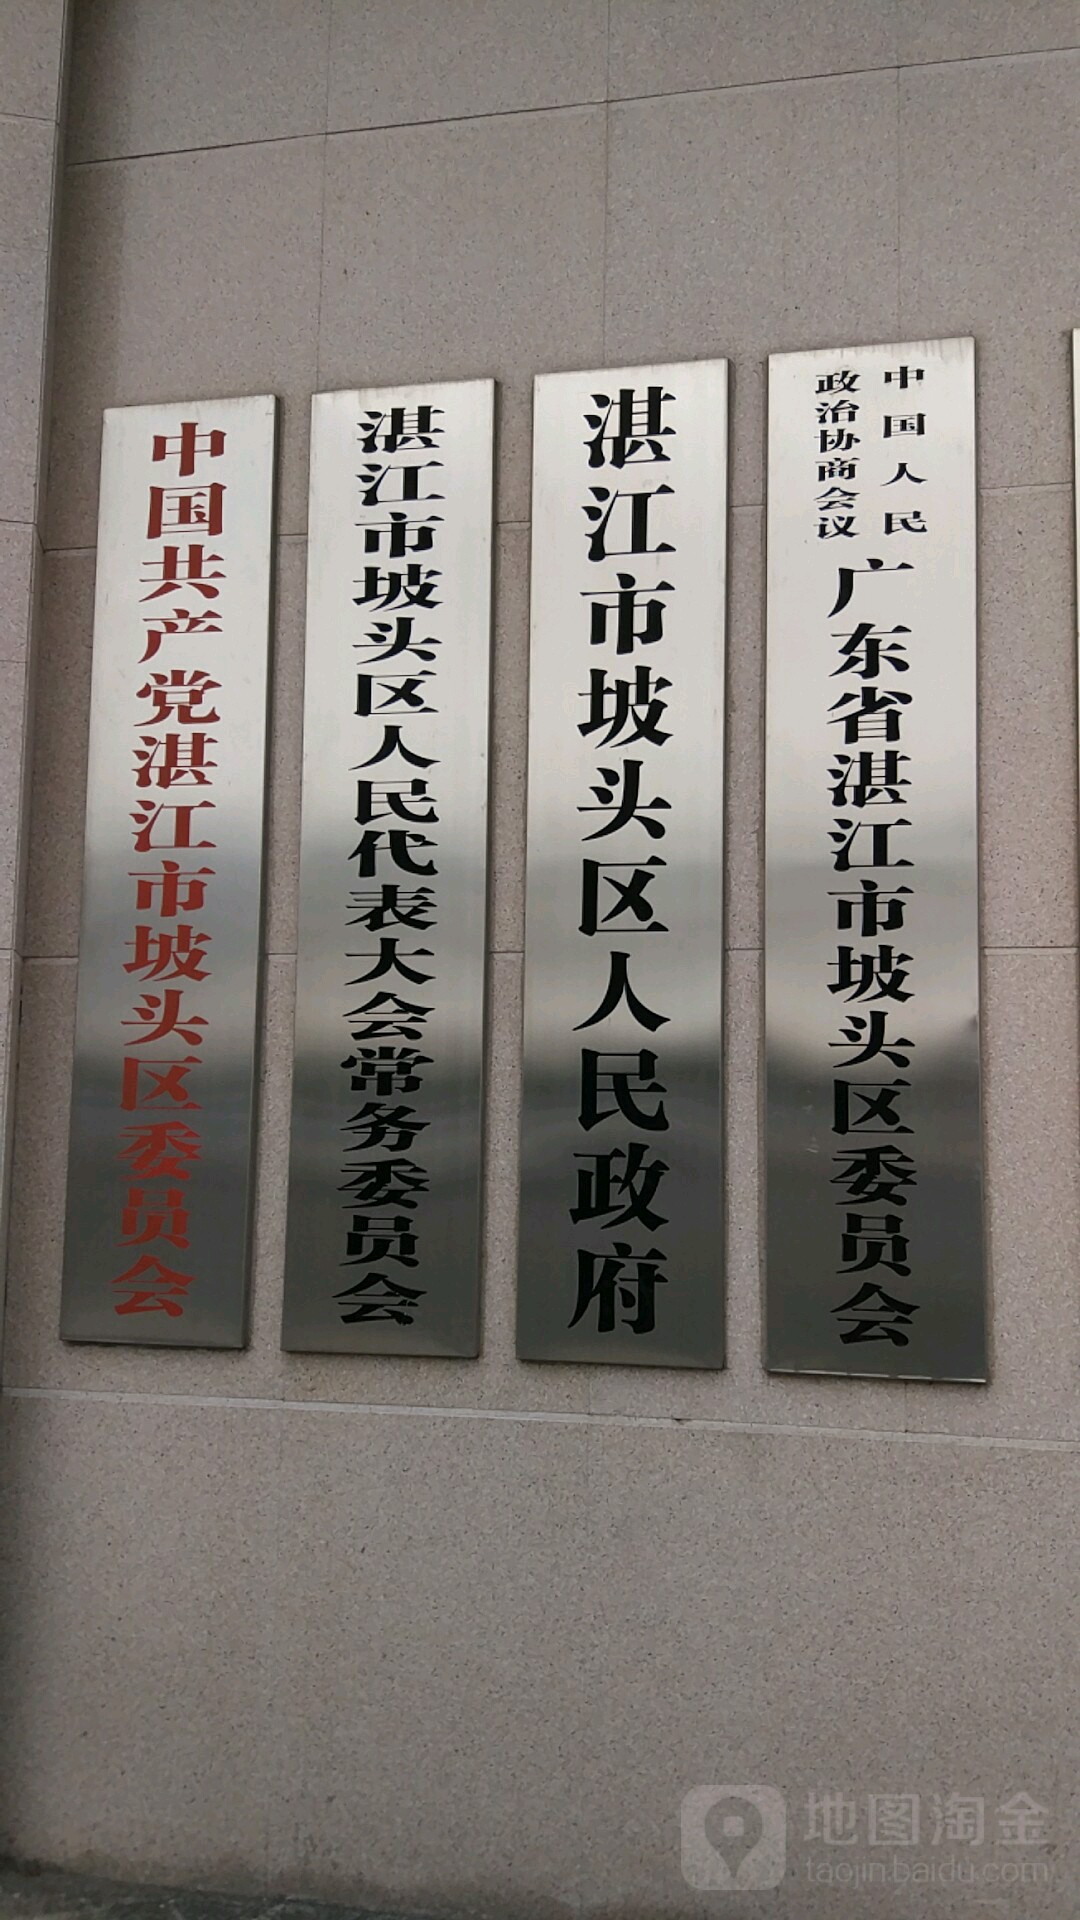 中国共产党湛江市坡头区委员会
湛江市坡头区人民代表大会常务委员会
湛江市坡头区人民政府
中国人民
政治协商会议
广东省湛江市坡头区委员会
地图淘金
taojin.baidu.com